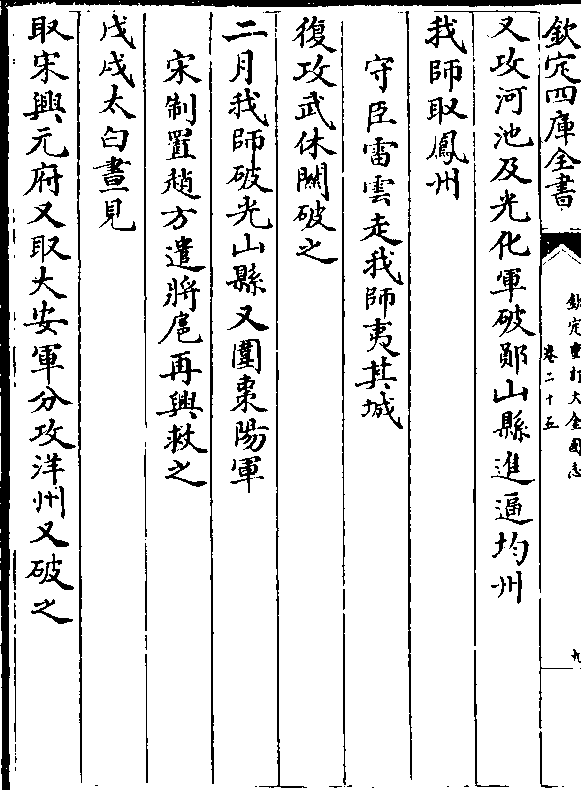 欽定四庫全書
欽定重訂大金國志
卷二十五
九
又攻河池及光化軍破鄖山縣進逼均州
我師取鳳州
守臣雷雲走我師夷其城
復攻武休關破之
二月我師破光山縣又圍棗陽軍
宋制置趙方遣將扈再興救之
戊戌太白晝見
取宋興元府又取大安軍分攻洋州又破之